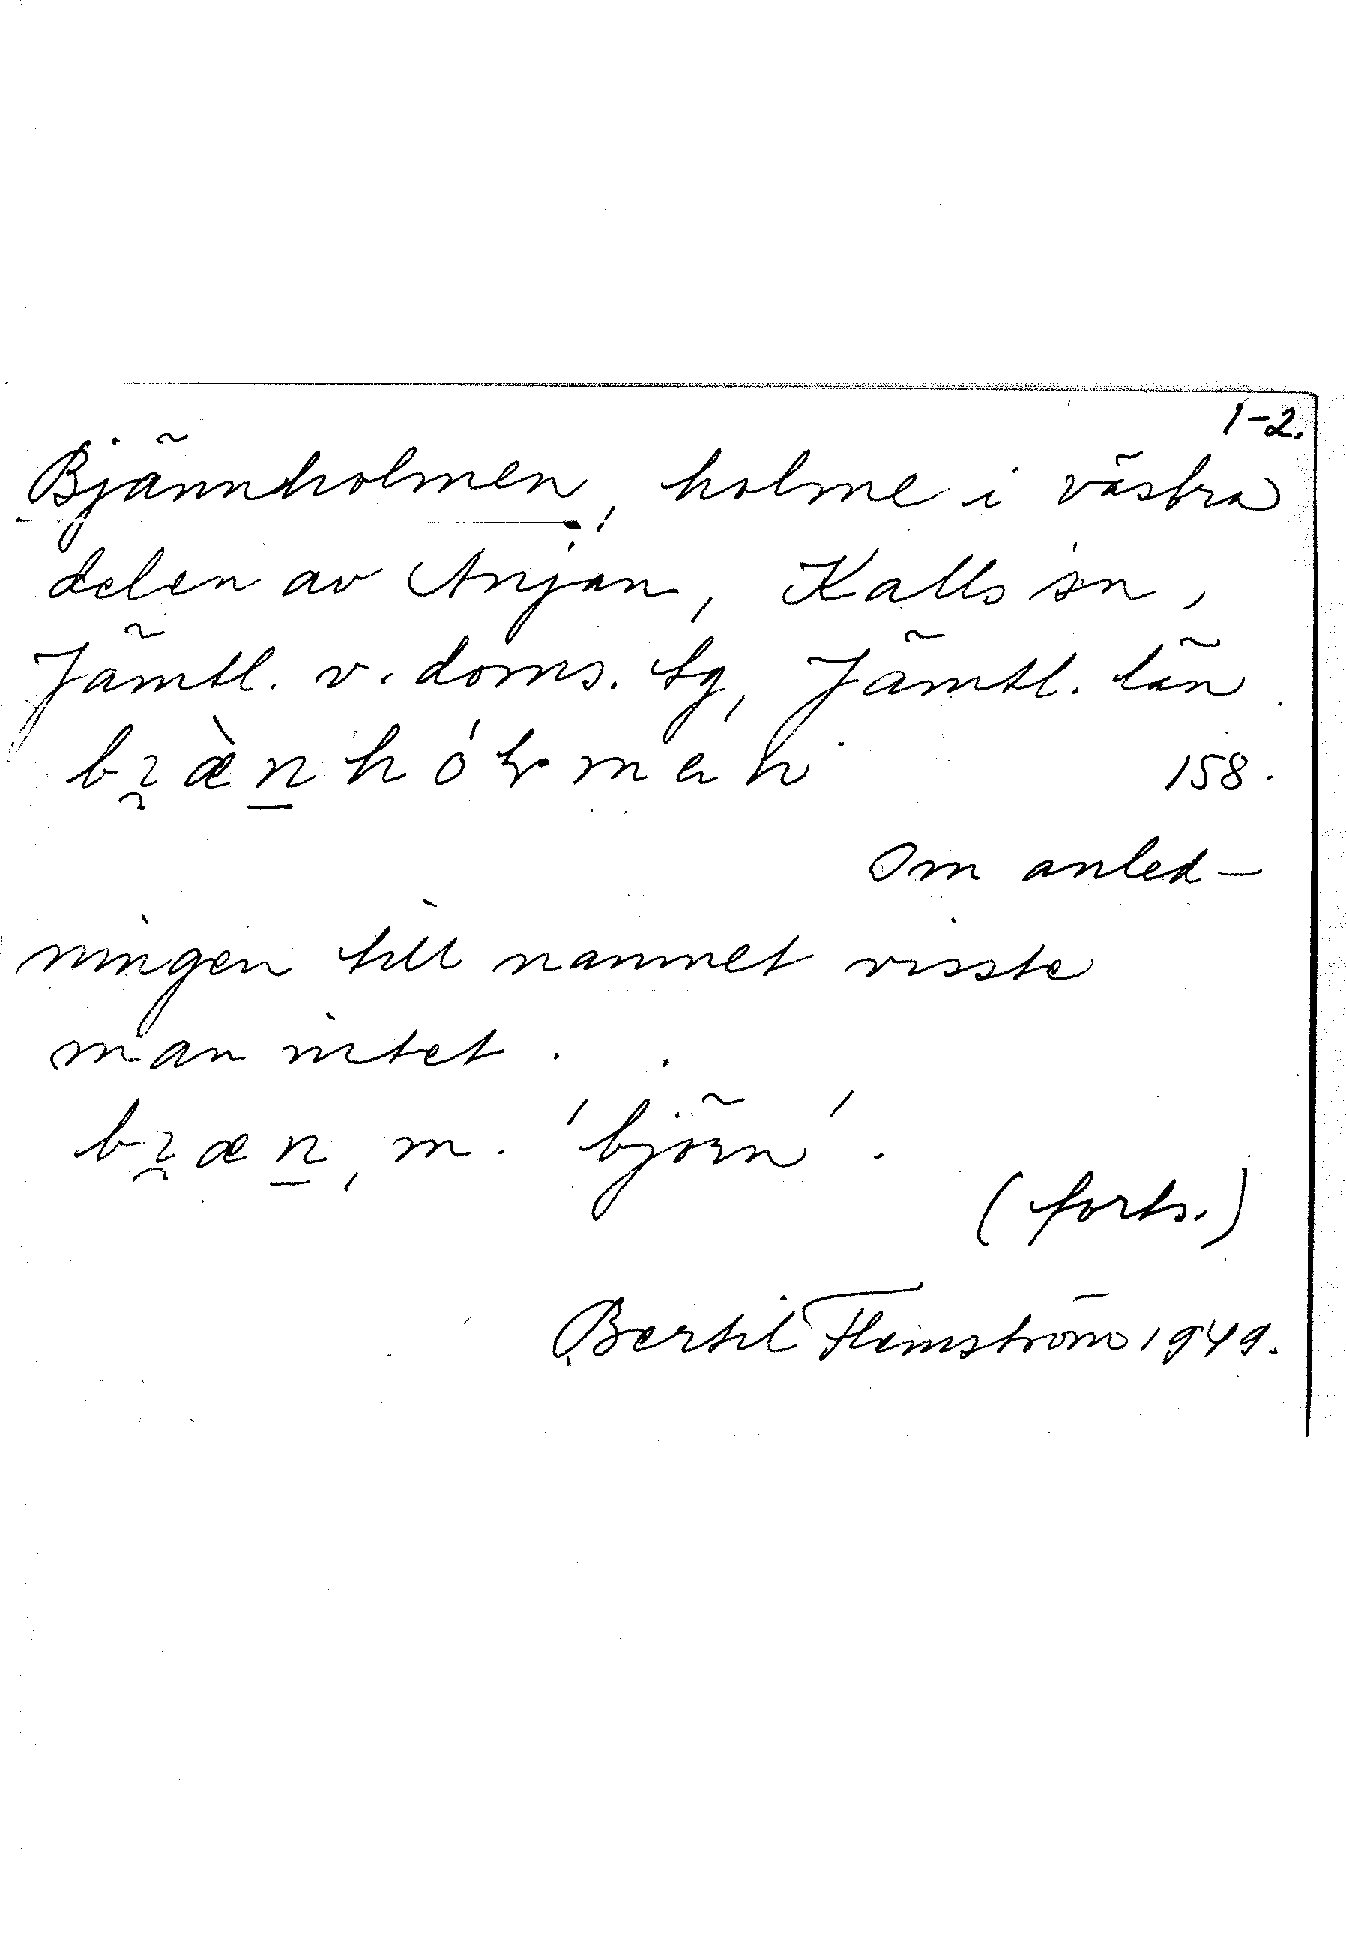 1-2.
Bjännholmen, holme i västra
delen av Anjan, Kalls sn,
Jämtl. v. doms. tg, Jämtl. län.
158.
Om anled-
ningen till namnet visste
man intet.
m. 'björn'.
(forts.)
Bertil Flemström 1949.